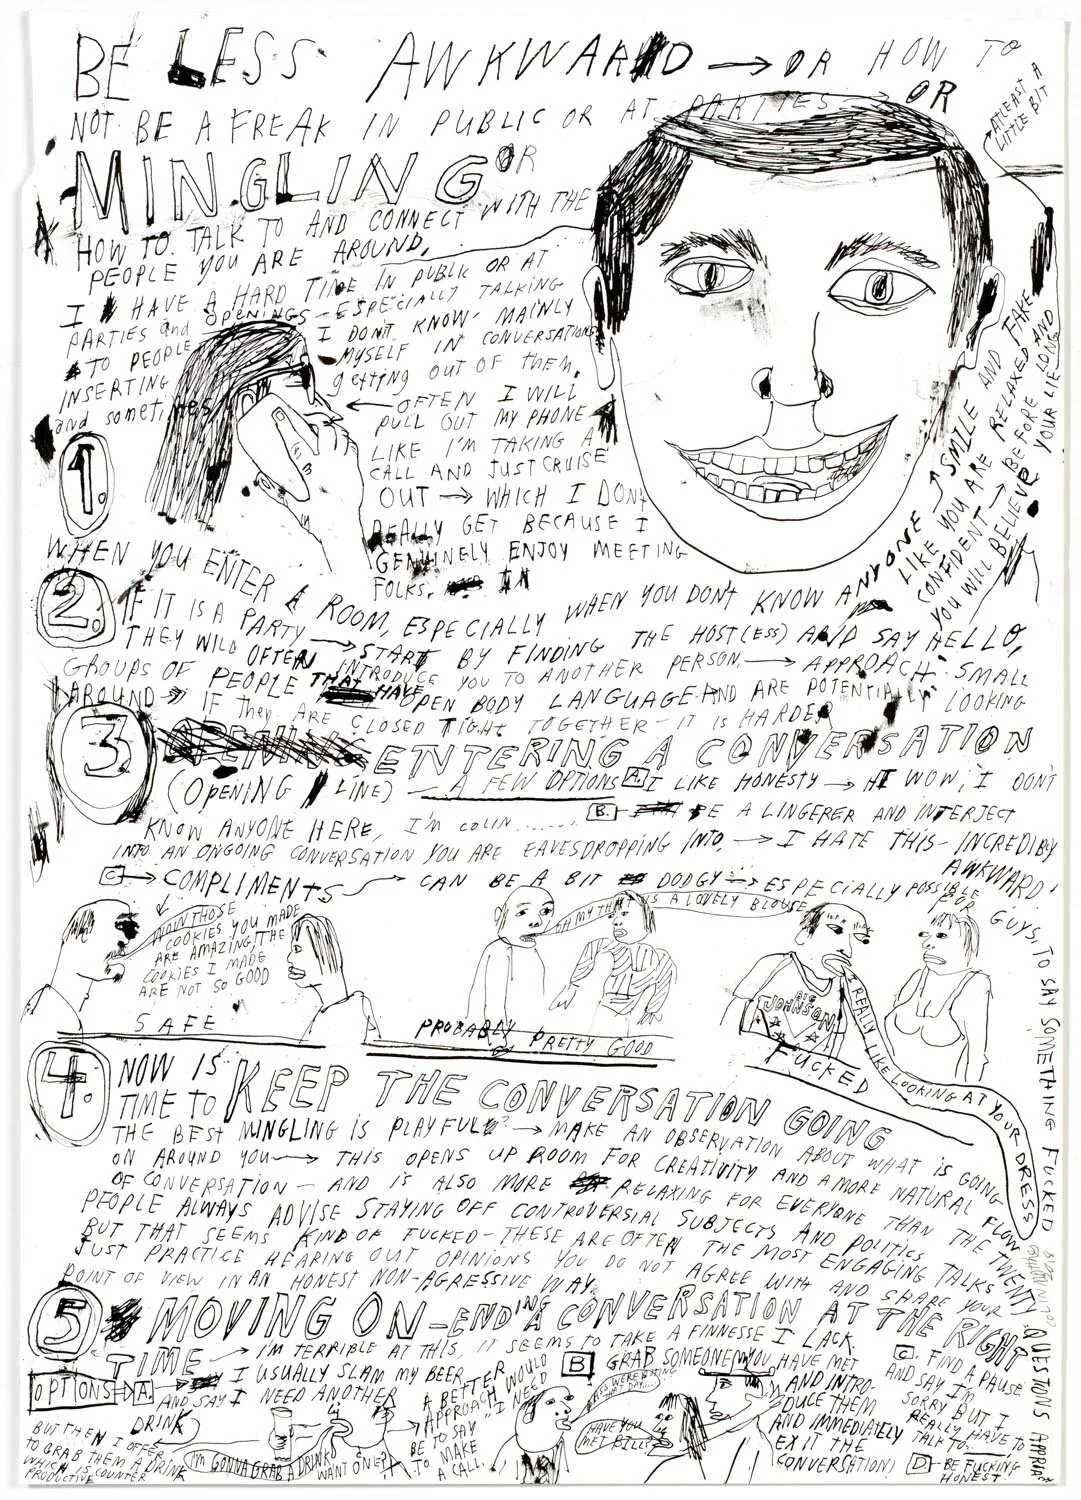 BE LESS AWKWARD → OR HOW TO
NOT BE A FREAK IN PUBLIC OR AT PARTIES → OR
ATLEAST A
LITTLE BIT
MINGLING OR
HOW TO TALK TO AND CONNECT WITH THE
PEOPLE YOU ARE AROUND.
I HAVE A HARD TIME IN PUBLIC OR AT
PARTIES and OPENINGS - ESPECIALLY TALKING
TO PEOPLE I DON'T KNOW - MAINLY
INSERTING MYSELF IN CONVERSATIONS
and sometimes getting OUT OF THEM.
← OFTEN I WILL
PULL OUT MY PHONE
LIKE I'M TAKING A
CALL AND JUST CRUISE
OUT → WHICH I DON'T
REALLY GET BECAUSE I
GENUINELY ENJOY MEETING
FOLKS.
1.
WHEN YOU ENTER A ROOM, ESPECIALLY WHEN YOU DON'T KNOW ANYONE → SMILE AND
LIKE YOU ARE RELAXED
CONFIDENT → BEFORE LONG AND
YOU WILL BELIEVE YOUR LIE
2.
IF IT IS A PARTY → START BY FINDING THE HOST(ESS) AND SAY HELLO,
THEY WILL OFTEN INTRODUCE YOU TO ANOTHER PERSON. → APPROACH SMALL
GROUPS OF PEOPLE THAT HAVE OPEN BODY LANGUAGE AND ARE POTENTIALLY LOOKING
AROUND → IF They ARE CLOSED TIGHT TOGETHER - IT IS HARDER
3
ENTERING A CONVERSATION
(OPENING LINE) - A FEW OPTIONS A. I LIKE HONESTY → HI WOW, I DON'T
KNOW ANYONE HERE, I'M COLIN.......
B. BE A LINGERER AND INTERJECT
INTO AN ONGOING CONVERSATION YOU ARE EAVESDROPPING INTO, → I HATE THIS - INCREDIBLY
AWKWARD.
C → COMPLIMENTS → CAN BE A BIT DODGY → ESPECIALLY POSSIBLE
FOR GUYS, TO SAY SOMETHING FUCKED
WOW THOSE
COOKIES YOU MADE
ARE AMAZING, THE
COOKIES I MADE
ARE NOT SO GOOD
SAFE
OH MY THAT IS A LOVELY BLOUSE
PROBABLY PRETTY GOOD
BIG
JOHNSON
I REALLY LIKE LOOKING AT YOUR DRESS
FUCKED
4.
NOW IS
TIME TO KEEP THE CONVERSATION GOING
THE BEST MINGLING IS PLAYFUL → MAKE AN OBSERVATION ABOUT WHAT IS GOING
ON AROUND YOU → THIS OPENS UP ROOM FOR CREATIVITY AND A MORE NATURAL FLOW
OF CONVERSATION - AND IS ALSO MORE RELAXING FOR EVERYONE THAN THE TWENTY QUESTIONS
PEOPLE ALWAYS ADVISE STAYING OFF CONTROVERSIAL SUBJECTS AND POLITICS
BUT THAT SEEMS KIND OF FUCKED - THESE ARE OFTEN THE MOST ENGAGING TALKS
JUST PRACTICE HEARING OUT OPINIONS YOU DO NOT AGREE WITH AND SHARE YOUR
POINT OF VIEW IN AN HONEST NON-AGRESSIVE WAY.
5
MOVING ON - ENDING A CONVERSATION AT THE RIGHT
TIME → I'M TERRIBLE AT THIS, IT SEEMS TO TAKE A FINNESSE I LACK.
OPTIONS → A. → I USUALLY SLAM MY BEER
AND SAY I NEED ANOTHER
DRINK
BUT THEN I OFFER
TO GRAB THEM A DRINK
WHICH IS COUNTER
PRODUCTIVE
I'M GONNA GRAB A DRINK
WANT ONE?
A BETTER
APPROACH WOULD
BE TO SAY "I NEED
TO MAKE
A CALL.
B GRAB SOMEONE YOU HAVE MET
AND INTRO-
DUCE THEM
AND IMMEDIATELY
EXIT THE
CONVERSATION!
HAVE YOU
MET BILL?
C. FIND A PAUSE
AND SAY I'M
SORRY BUT I
REALLY HAVE TO
TALK TO
D - BE FUCKING
HONEST